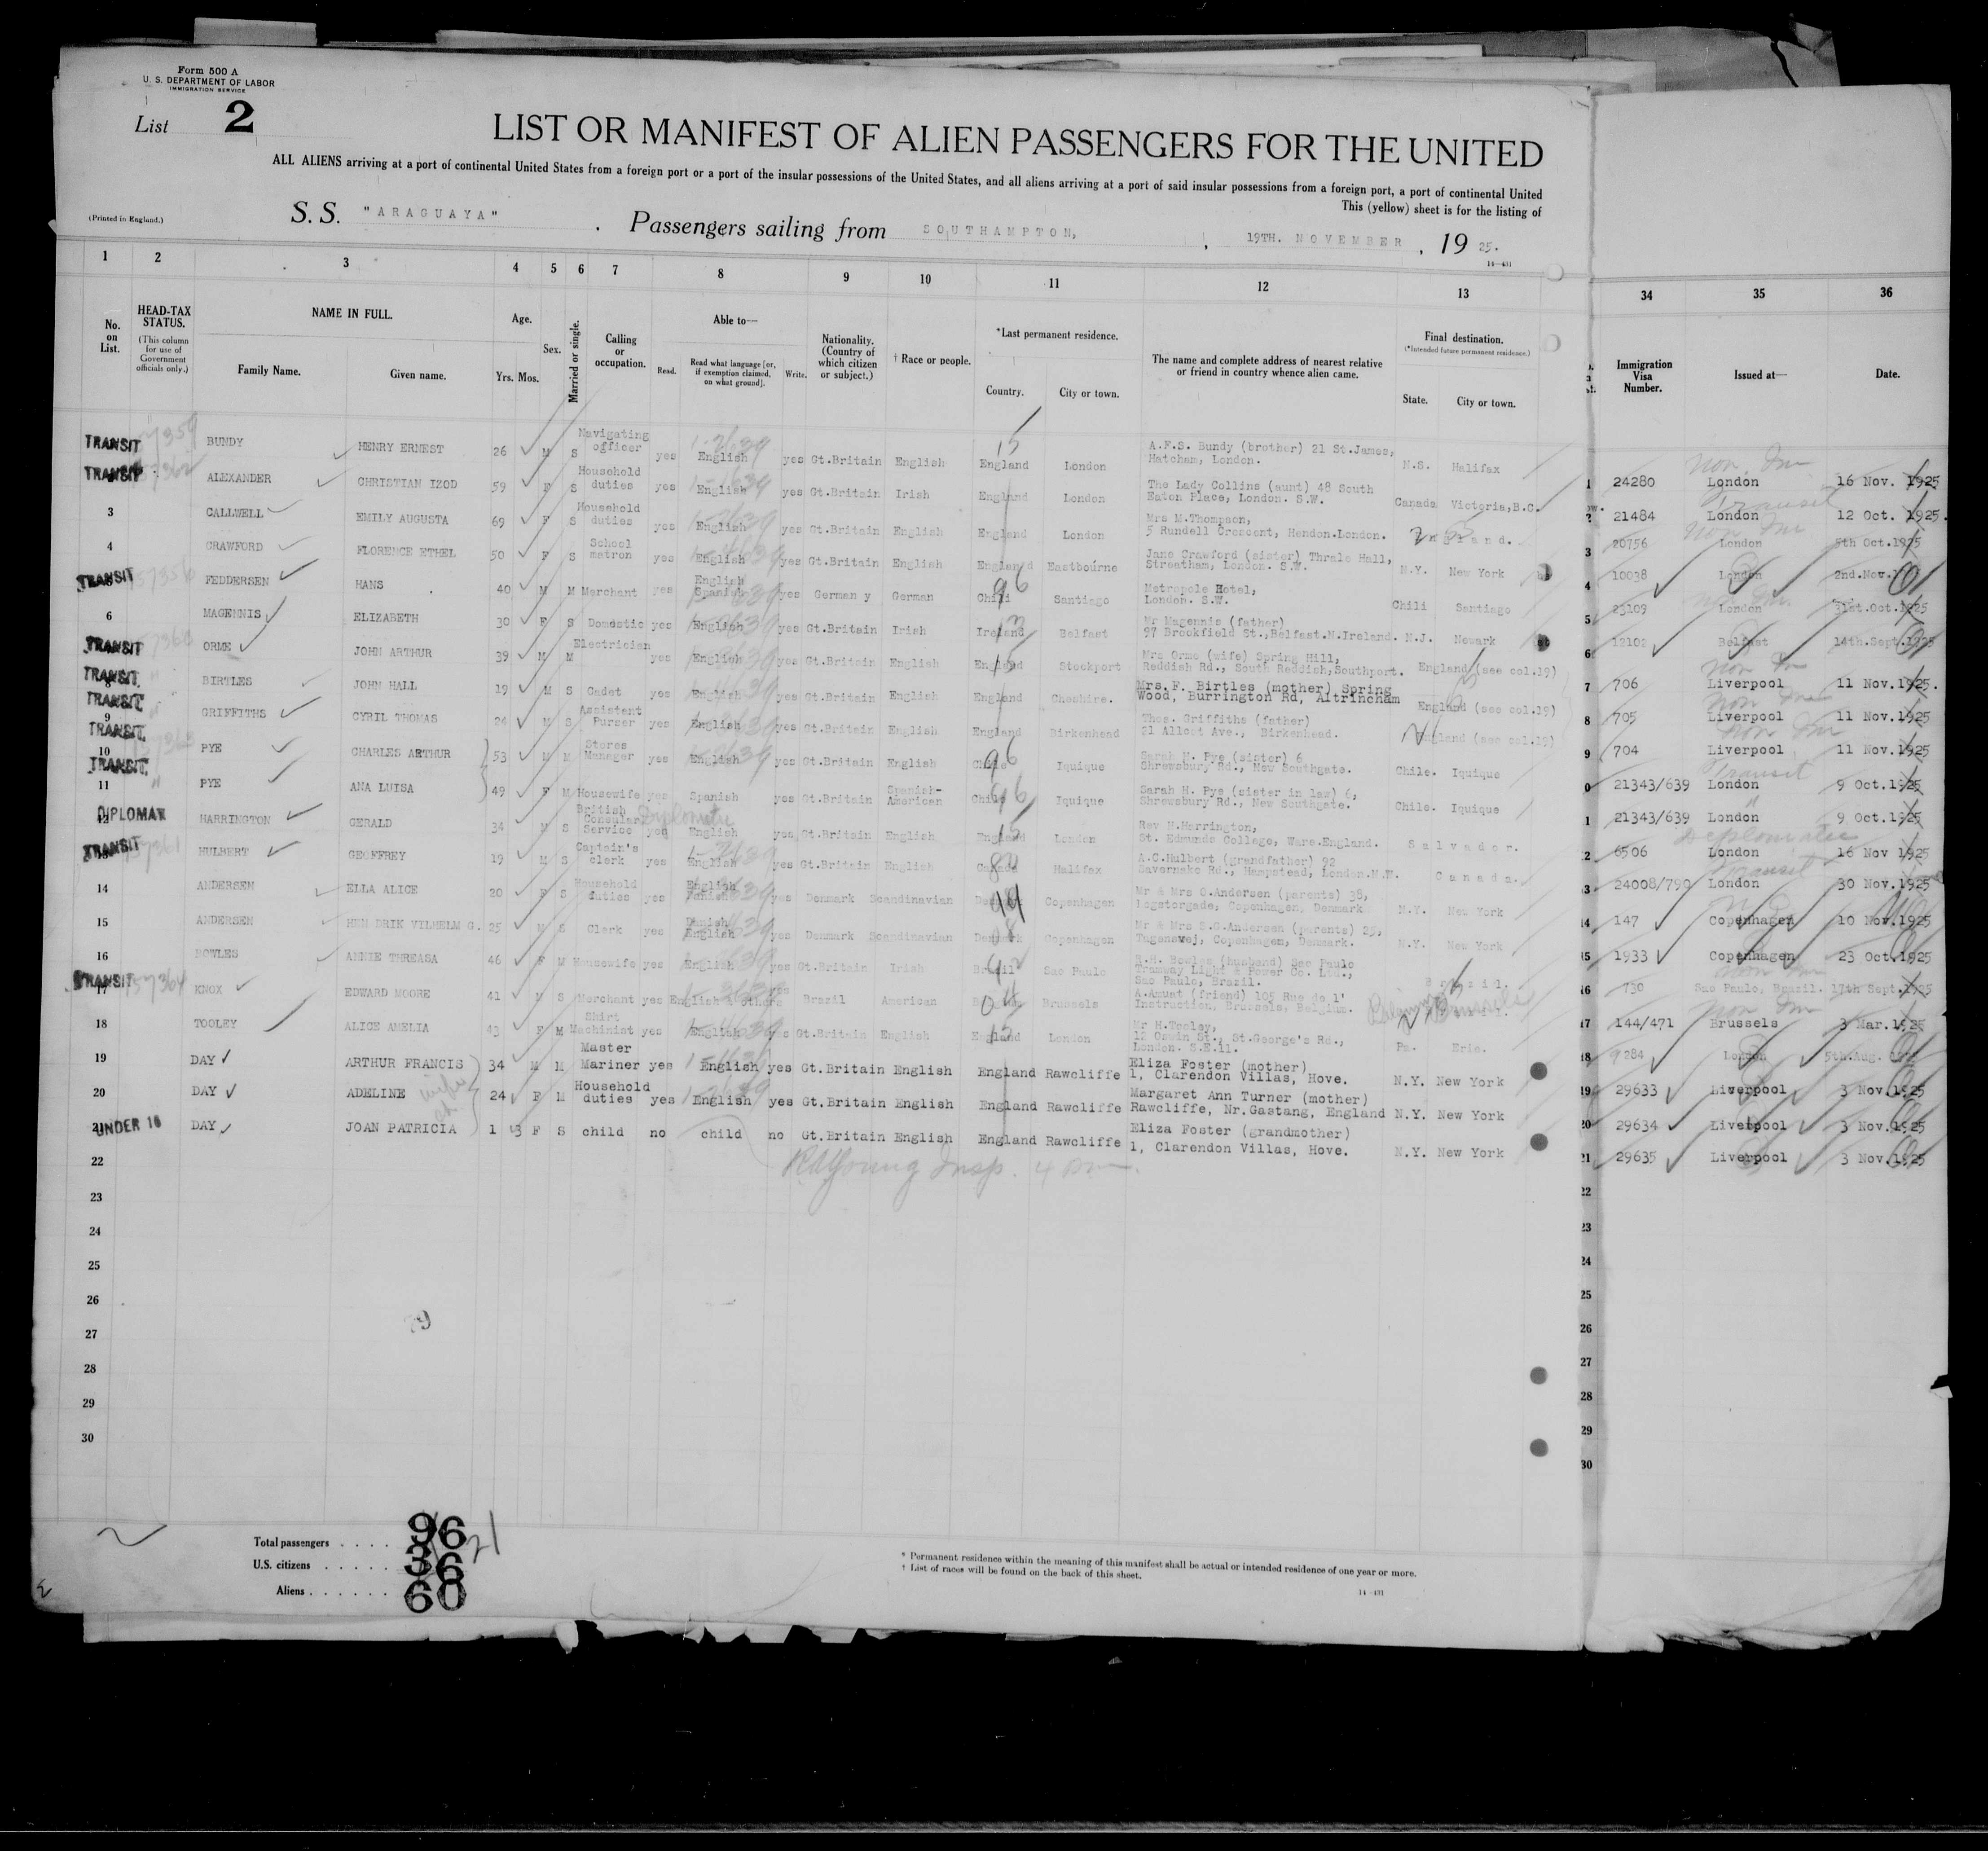 Form 500 A
U. S. DEPARTMENT OF LABOR
IMMIGRATION SERVICE
List 2
LIST OR MANIFEST OF ALIEN PASSENGERS FOR THE UNITED
ALL ALIENS arriving at a port of continental United States from a foreign port or a port of the insular possessions of the United States, and all aliens arriving at a port of said insular possessions from a foreign port, a port of continental United
This (yellow) sheet is for the listing of
(Printed in England.)
S. S. "ARAGUAYA" . Passengers sailing from SOUTHAMPTON, , 19TH. NOVEMBER , 19 25.
14—431
1 2 3 4 5 6 7 8 9 10 11 12 13 34 35 36
No. on List.
HEAD-TAX STATUS.
(This column for use of Government officials only.)
NAME IN FULL.
Family Name. Given name.
Age.
Yrs. Mos.
Sex.
Married or single.
Calling or occupation.
Able to—
Read. Read what language [or, if exemption claimed, on what ground]. Write.
Nationality. (Country of which citizen or subject.)
† Race or people.
*Last permanent residence.
Country. City or town.
The name and complete address of nearest relative or friend in country whence alien came.
Final destination.
(*Intended future permanent residence.)
State. City or town.
Immigration Visa Number.
Issued at—
Date.
TRANSIT BUNDY HENRY ERNEST 26 M S Navigating officer yes English yes Gt.Britain English England London A.F.S. Bundy (brother) 21 St.James, Hatcham, London. N.S. Halifax 1 24280 London 16 Nov. 1925
TRANSIT ALEXANDER CHRISTIAN IZOD 59 F S Household duties yes English yes Gt.Britain Irish England London The Lady Collins (aunt) 48 South Eaton Place, London. S.W. Canada Victoria,B.C. 2 21484 London 12 Oct. 1925.
3 CALLWELL EMILY AUGUSTA 69 F S Household duties yes English yes Gt.Britain English England London Mrs M.Thompson, 5 Rundell Crescent, Hendon.London. England. 3 20756 London 5th Oct.1925
4 CRAWFORD FLORENCE ETHEL 50 F S School matron yes English yes Gt.Britain English England Eastbourne Jane Crawford (sister) Thrale Hall, Streatham, London. S.W. N.Y. New York 4 10038 London 2nd.Nov.
TRANSIT FEDDERSEN HANS 40 M M Merchant yes English Spanish yes German y German Chili Santiago Metropole Hotel, London. S.W. Chili Santiago 5 23109 London 31st.Oct.1925
6 MAGENNIS ELIZABETH 30 F S Domestic yes English yes Gt.Britain Irish Ireland Belfast Mr Magennis (father) 97 Brookfield St.,Belfast.N.Ireland. N.J. Newark 6 12102 Belfast 14th.Sept.1925
TRANSIT ORME JOHN ARTHUR 39 M M Electrician yes English yes Gt.Britain English England Stockport Mrs Orme (wife) Spring Hill, Reddish Rd., South Reddish,Southport. England (see col.19) 7 706 Liverpool 11 Nov.1925.
TRANSIT 8 BIRTLES JOHN HALL 19 M S Cadet yes English yes Gt.Britain English England Cheshire. Mrs.F. Birtles (mother) Spring Wood, Burrington Rd, Altrincham England (see col.19) 8 705 Liverpool 11 Nov.1925
TRANSIT 9 GRIFFITHS CYRIL THOMAS 24 M S Assistant Purser yes English yes Gt.Britain English England Birkenhead Thos. Griffiths (father) 21 Allcot Ave., Birkenhead. England (see col.19) 9 704 Liverpool 11 Nov.1925
TRANSIT 10 PYE CHARLES ARTHUR 53 M M Stores Manager yes English yes Gt.Britain English Chile Iquique Sarah H. Pye (sister) 6 Shrewsbury Rd., New Southgate. Chile. Iquique 0 21343/639 London 9 Oct.1925
TRANSIT 11 PYE ANA LUISA 49 F M Housewife yes Spanish yes Gt.Britain Spanish-American Chile Iquique Sarah H. Pye (sister in law) 6, Shrewsbury Rd., New Southgate. Chile. Iquique 1 21343/639 London 9 Oct.1925
DIPLOMAT 12 HARRINGTON GERALD 34 M S British Consular Service yes English yes Gt.Britain English England London Rev H.Harrington, St. Edmunds College, Ware.England. Salvador. 2 6506 London 16 Nov 1925
TRANSIT HULBERT GEOFFREY 19 M S Captain's clerk yes English yes Gt.Britain English Canada Halifax A.C.Hulbert (grandfather) 92 Savernake Rd., Hampstead, London.N.W. Canada. 3 24008/790 London 30 Nov.1925
14 ANDERSEN ELLA ALICE 20 F S Household duties yes English Danish yes Denmark Scandinavian Denmark Copenhagen Mr & Mrs O.Andersen (parents) 38, Logstorgade, Copenhagen, Denmark N.Y. New York 14 147 Copenhagen 10 Nov.1925
15 ANDERSEN HEN DRIK VILHELM G. 25 M S Clerk yes Danish English yes Denmark Scandinavian Denmark Copenhagen Mr & Mrs S.G.Andersen (parents) 25, Tugansvej, Copenhagen, Denmark. N.Y. New York 15 1933 Copenhagen 23 Oct.1925
16 BOWLES ANNIE TEREASA 46 F M Housewife yes English yes Gt.Britain Irish Brazil Sao Paulo R.H. Bowles (husband) Sao Paulo Tramway Light & Power Co. Ltd., Sao Paulo, Brazil. Brazil. 16 730 Sao Paulo, Brazil. 17th Sept.1925
TRANSIT 17 KNOX EDWARD MOORE 41 M S Merchant yes English & Others yes Brazil American Brussels A.Amuat (friend) 105 Rue de l' Instruction, Brussels, Belgium. Brussels 17 144/471 Brussels 3 Mar.1925
18 TOOLEY ALICE AMELIA 43 F M Shirt Machinist yes English yes Gt.Britain English England London Mr H.Tooley, 12 Oswin St., St.George's Rd., London. S.E.11. Pa. Erie. 18 9284 London 5th.Aug.
19 DAY ARTHUR FRANCIS 34 M M Master Mariner yes English yes Gt.Britain English England Rawcliffe Eliza Foster (mother) 1, Clarendon Villas, Hove. N.Y. New York 19 29633 Liverpool 3 Nov.1925
20 DAY ADELINE 24 F M Household duties yes English yes Gt.Britain English England Rawcliffe Margaret Ann Turner (mother) Rawcliffe, Nr.Gastang, England N.Y. New York 20 29634 Liverpool 3 Nov.1925
UNDER 16 DAY JOAN PATRICIA 1 3 F S child no child no Gt.Britain English England Rawcliffe Eliza Foster (grandmother) 1, Clarendon Villas, Hove. N.Y. New York 21 29635 Liverpool 3 Nov.1925
22 Young Insp. 4 pm 22
23 23
24 24
25 25
26 26
27 27
28 28
29 29
30 30
Total passengers . . . . 96 21
U.S. citizens . . . . . 36
Aliens . . . . . . 60
* Permanent residence within the meaning of this manifest shall be actual or intended residence of one year or more.
† List of races will be found on the back of this sheet.
14—431